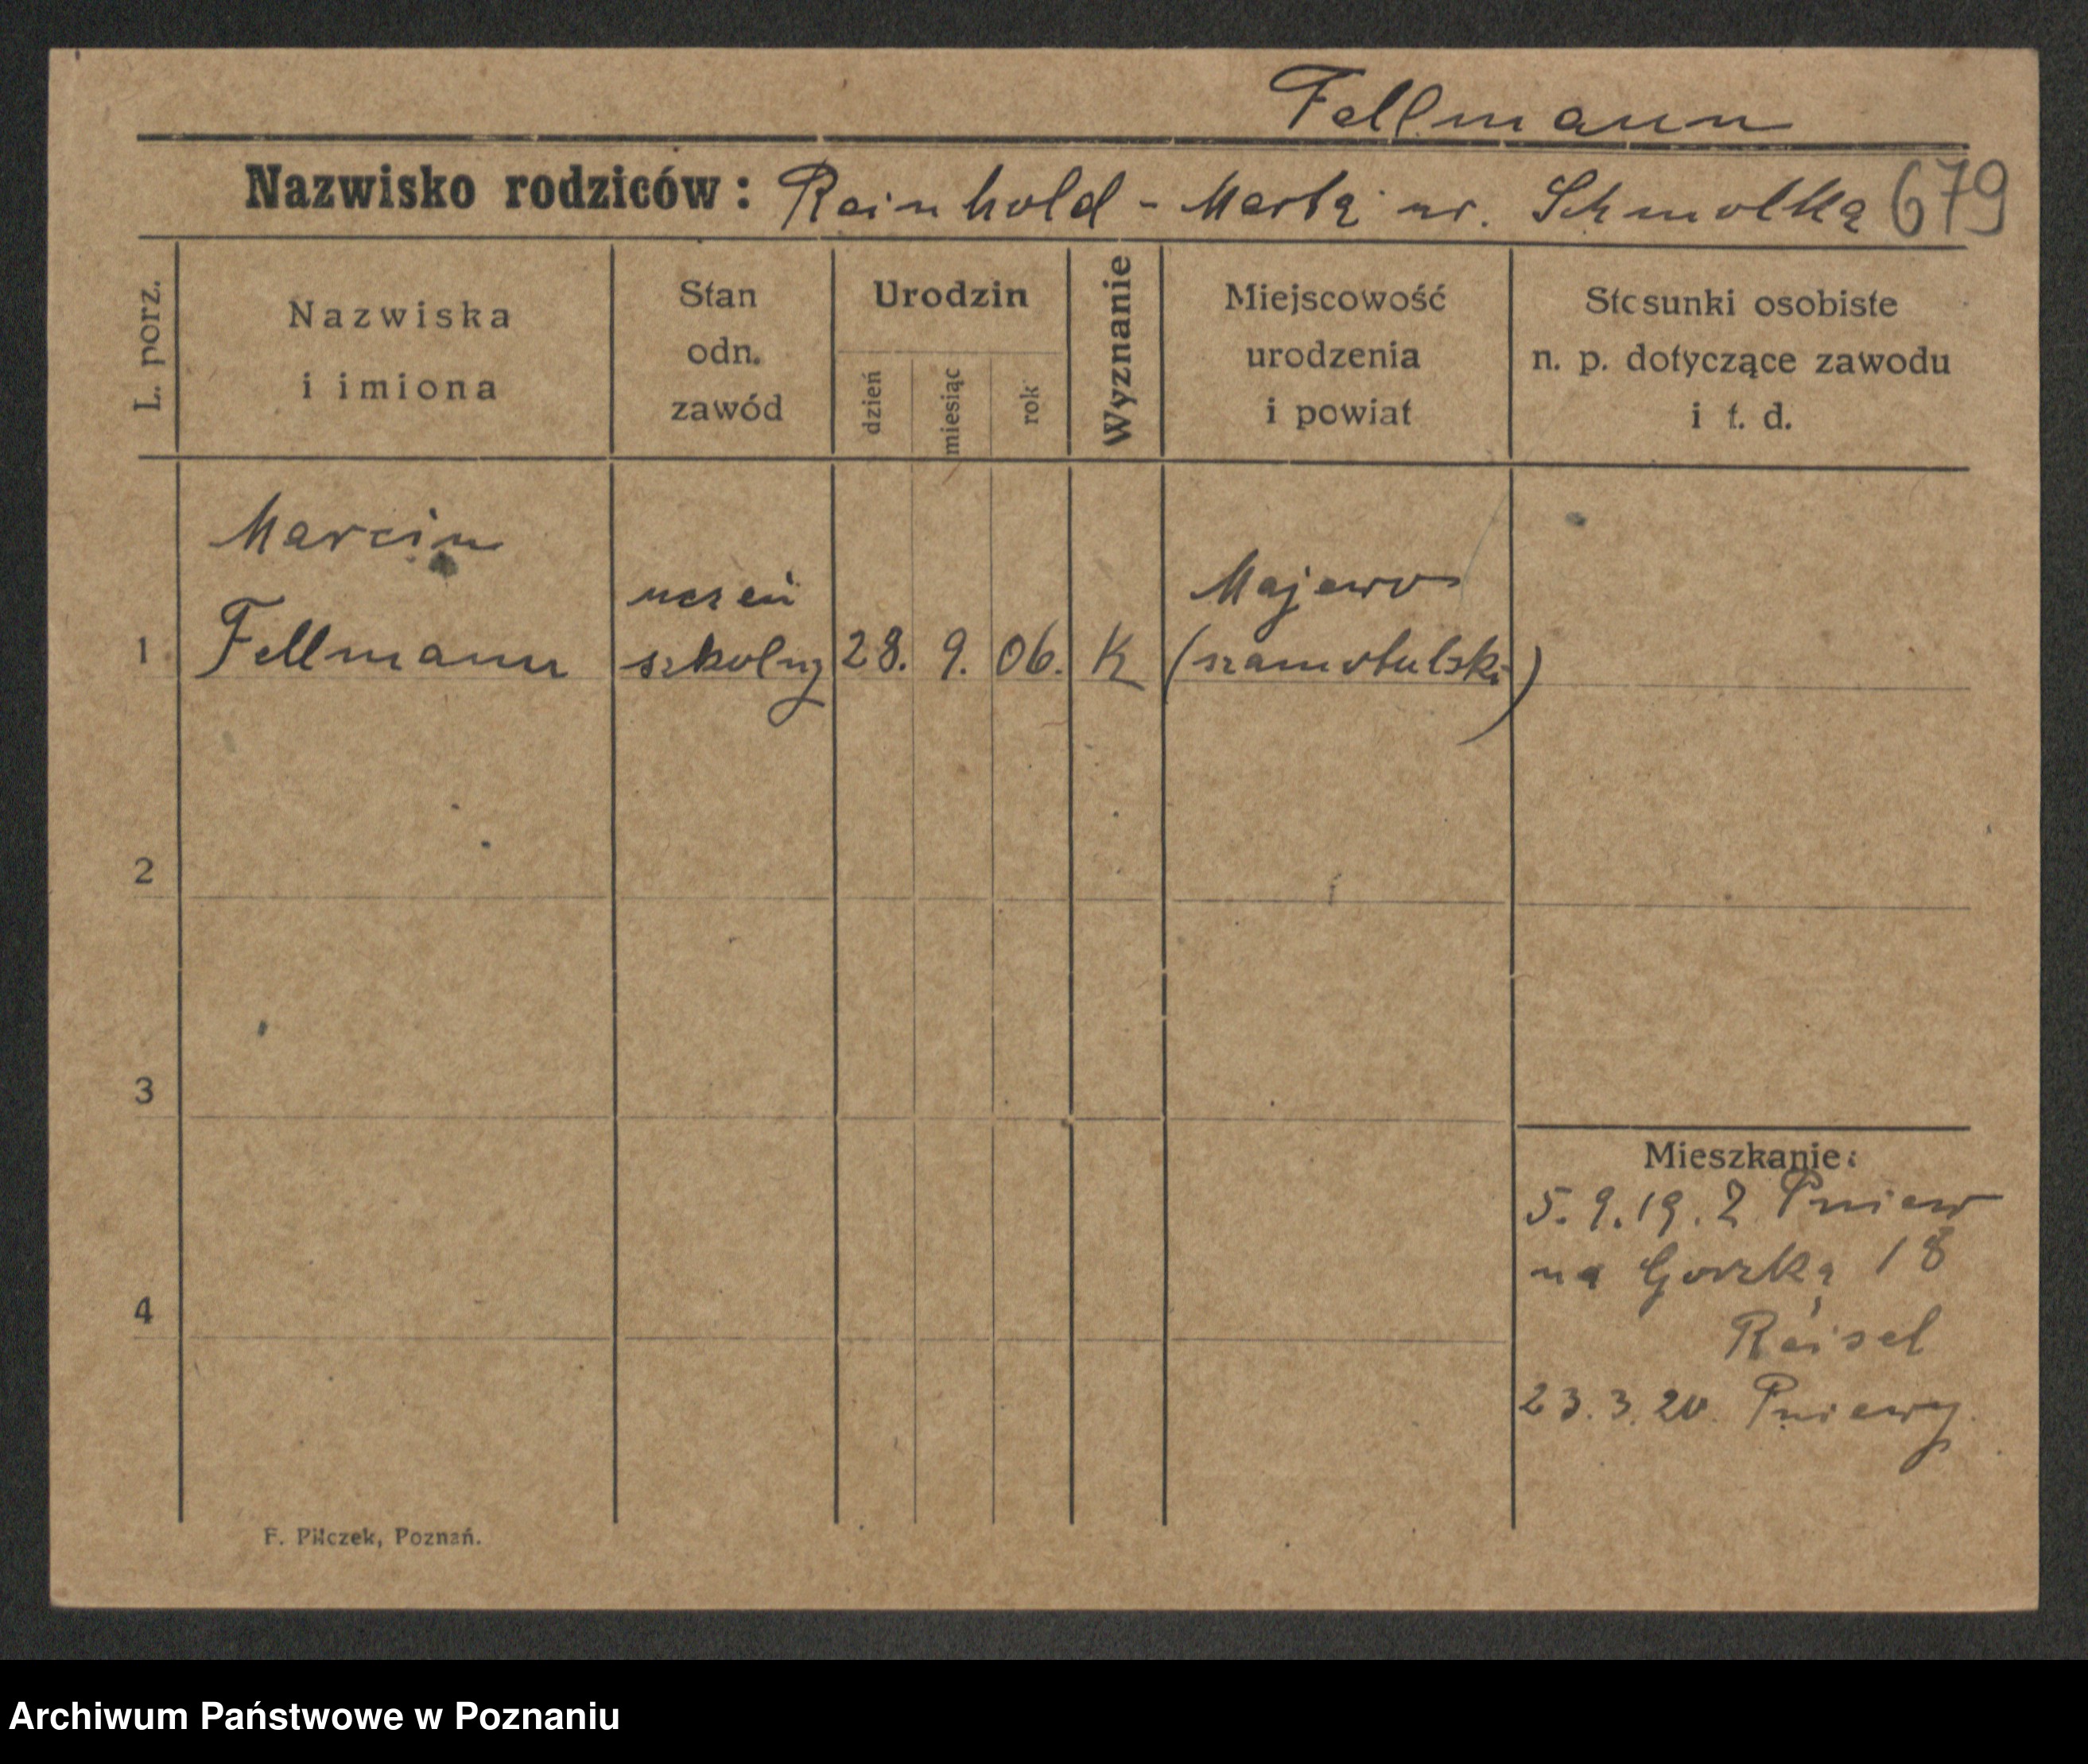 Fellmann
Nazwisko rodziców: Reinhold - Marta ur. Schmolka 679
L. porz.
Nazwiska
i imiona
Stan
odn.
zawód
Urodzin
dzień
miesiąc
rok
Wyznanie
Miejscowość
urodzenia
i powiat
Stosunki osobiste
n. p. dotyczące zawodu
i t. d.
Marcin
Fellmann
uczeń
szkolny
28. 9. 06. K
Majewo
(szamotulski)
1
2
3
4
Mieszkanie:
5.9.19. Z Pniew
na Gorzka 18
Reisel
23.3.20. Pniewy
F. Pilczek, Poznań.
Archiwum Państwowe w Poznaniu